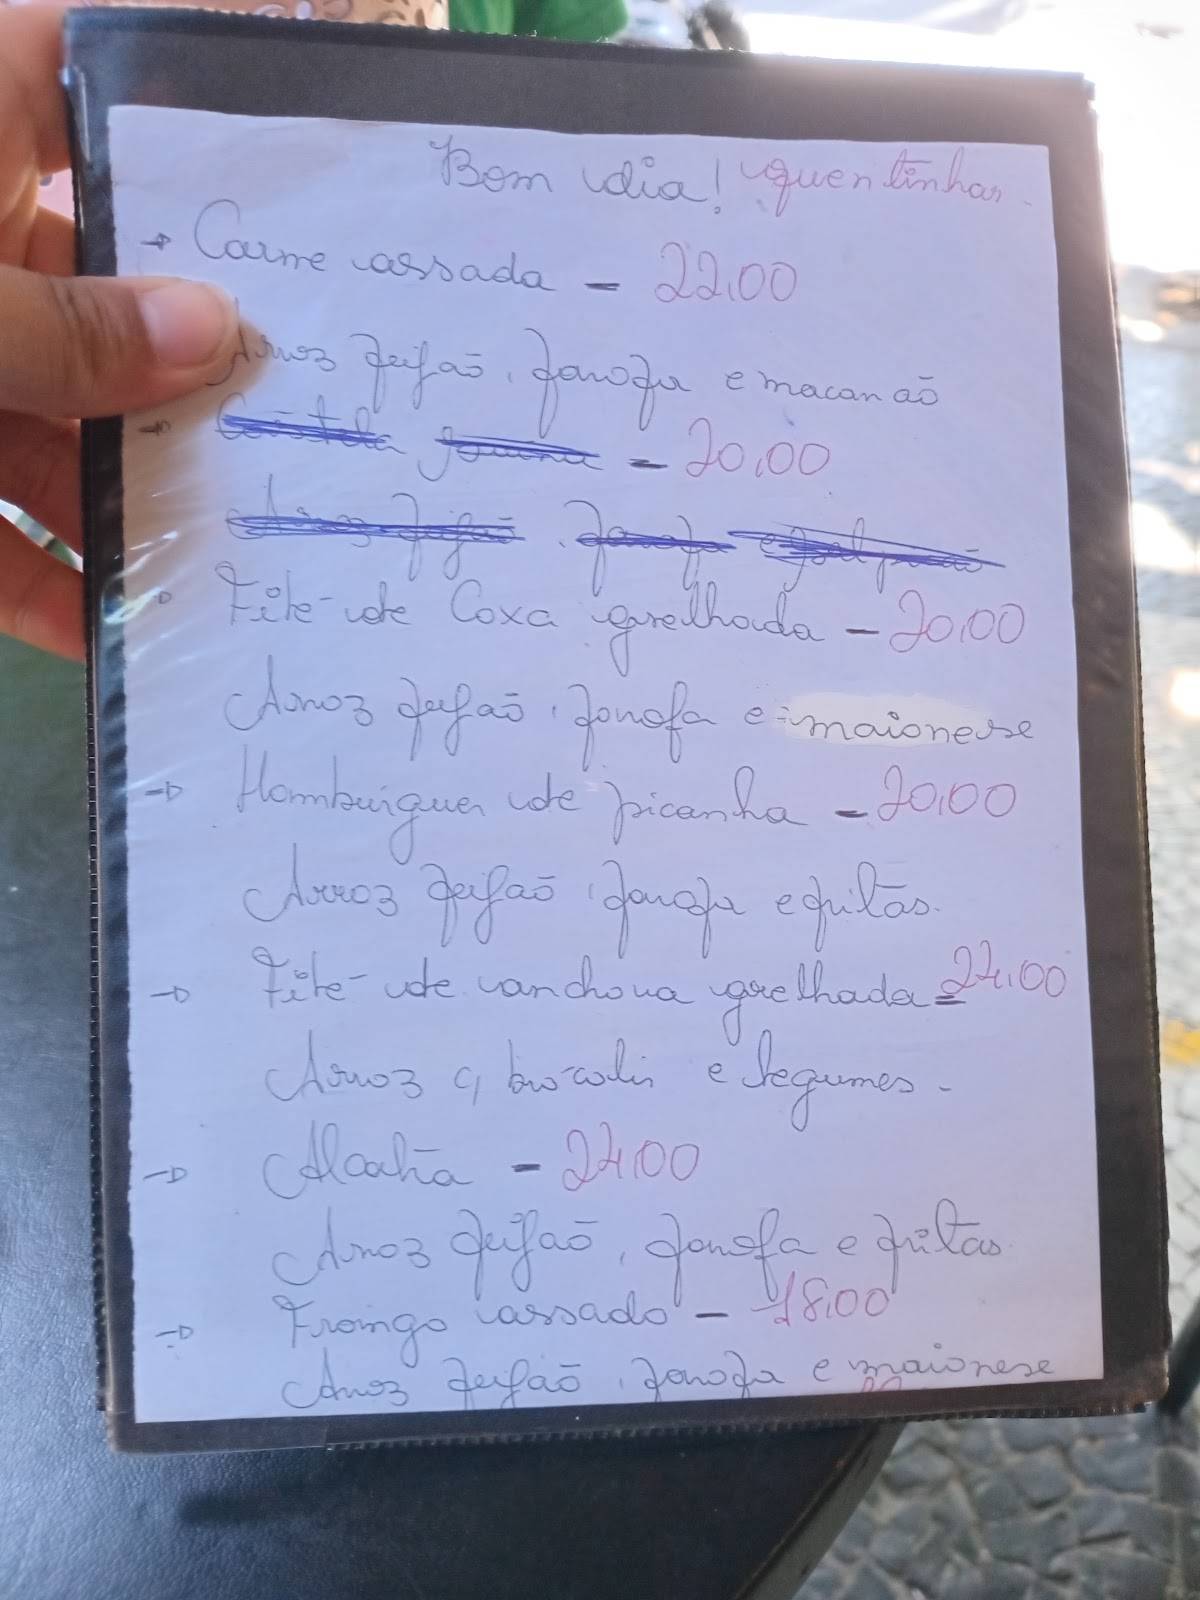 Bom dia! quentinhas.
→ Carne assada - 22,00
Arroz feijão, farofa e macarrão
→ Costela suína - 20,00
Arroz feijão, farofa
Filé de Coxa grelhada - 20,00
Arroz feijão, farofa e maionese
→ Hamburguer de picanha - 20,00
Arroz feijão, farofa e fritas.
→ Filé de anchova grelhada = 24,00
Arroz c, brócolis e legumes.
→ Alcatra - 24,00
Arroz feijão, farofa e fritas
→ Frango assado - 18,00
Arroz feijão, farofa e maionese